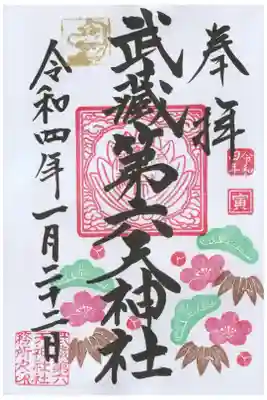 奉拝
令和四年
寅
武蔵第六天神社
令和四年一月二十二日
武蔵第六
天神社社
務所之印